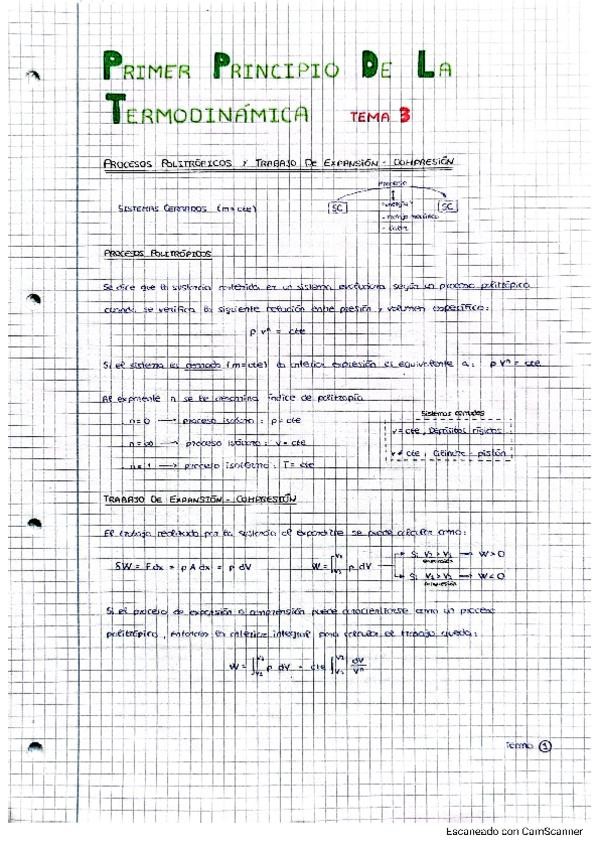 PRIMER PRINCIPIO DE LA
TERMODINÁMICA TEMA 3
PROCESOS POLITRÓPICOS Y TRABAJO DE EXPANSIÓN - COMPRESIÓN
Proceso
SISTEMAS CERRADOS (m = cte) SC SC
- energía
- trabajo mecánico
- calor
PROCESOS POLITRÓPICOS
Se dice que la sustancia contenida en un sistema evoluciona según un proceso politrópico
cuando se verifica la siguiente relación entre presión y volumen específico:
p vⁿ = cte
Si el sistema es cerrado (m=cte) la anterior expresión es equivalente a: p Vⁿ = cte
Al exponente n se le denomina índice de politropía
Sistemas cerrados
n = 0 → proceso isóbaro : p = cte
V = cte, Depósitos rígidos
n = ∞ → proceso isócoro : V = cte
V ≠ cte, Cilindro - pistón
n = 1 → proceso isotermo : T = cte
TRABAJO DE EXPANSIÓN - COMPRESIÓN
El trabajo realizado por la sustancia al expandirse se puede calcular como:
δW = F dx = p A dx = p dV W = ∫ p dV Si V₂ > V₁ → W > 0
expansión
Si V₂ < V₁ → W < 0
compresión
Si el proceso de expansión o compresión puede caracterizarse como un proceso
politrópico, entonces la anterior integral para calcular el trabajo queda:
W = ∫ p dV = cte ∫ dV/Vⁿ
Termo 1
Escaneado con CamScanner